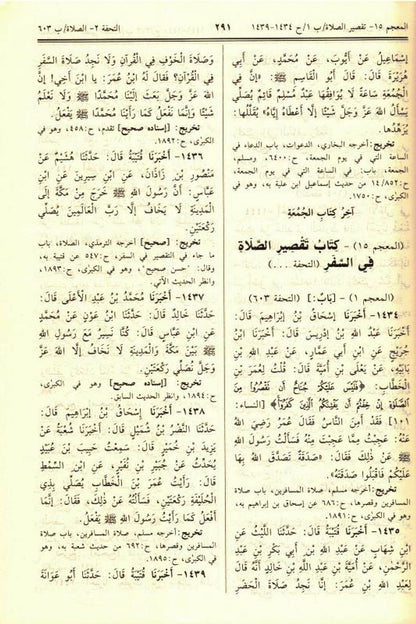 المعجم ١٥- تقصير الصلاة/ب ١/ح ١٤٣٤-١٤٣٩
٢٩١
التحفة ٢- الصلاة/ب ٦٠٣
إِسْمَاعِيلُ عَنْ أَيُّوبَ، عَنْ مُحَمَّدٍ، عَنْ أَبِي
هُرَيْرَةَ قَالَ: قَالَ أَبُو الْقَاسِمِ ﷺ: «إِنَّ فِي
الْجُمُعَةِ سَاعَةً لَا يُوَافِقُهَا عَبْدٌ مُسْلِمٌ قَائِمٌ يُصَلِّي
يَسْأَلُ اللهَ عَزَّ وَجَلَّ شَيْئًا إِلَّا أَعْطَاهُ إِيَّاهُ» يُقَلِّلُهَا:
يُزَهِّدُهَا.
تخريج: أخرجه البخاري، الدعوات، باب الدعاء في
الساعة التي في يوم الجمعة، ح:٦٤٠٠، ومسلم،
الجمعة، باب: في الساعة التي في يوم الجمعة،
ح:١٤/٨٥٢ من حديث إسماعيل ابن علية به، وهو في
الكبرى، ح:١٧٥٠.
آخِرُ كِتَابِ الْجُمُعَةِ
(المعجم ١٥) - كِتَابُ تَقْصِيرِ الصَّلَاةِ
فِي السَّفَرِ (التحفة . . .)
(المعجم ١) - [بَابٌ:] (التحفة ٦٠٣)
١٤٣٤- أَخْبَرَنَا إِسْحَاقُ بْنُ إِبْرَاهِيمَ قَالَ:
أَخْبَرَنَا عَبْدُ اللهِ بْنُ إِدْرِيسَ قَالَ: أَخْبَرَنَا ابْنُ
جُرَيْجٍ عَنِ ابْنِ أَبِي عَمَّارٍ، عَنْ عَبْدِ اللهِ بْنِ
بَابَيْهِ، عَنْ يَعْلَى بْنِ أُمَيَّةَ قَالَ: قُلْتُ لِعُمَرَ بْنِ
الْخَطَّابِ: ﴿فَلَيْسَ عَلَيْكُمْ جُنَاحٌ أَن تَقْصُرُوا مِنَ
الصَّلَوٰةِ إِنْ خِفْتُمْ أَن يَفْتِنَكُمُ الَّذِينَ كَفَرُوا﴾ [النساء:
١٠١] فَقَدْ أَمِنَ النَّاسُ فَقَالَ عُمَرُ رَضِيَ اللهُ
عَنْهُ: عَجِبْتُ مِمَّا عَجِبْتَ مِنْهُ فَسَأَلْتُ رَسُولَ اللهِ
ﷺ عَنْ ذَلِكَ فَقَالَ: «صَدَقَةٌ تَصَدَّقَ اللهُ بِهَا
عَلَيْكُمْ فَاقْبَلُوا صَدَقَتَهُ».
تخريج: أخرجه مسلم، صلاة المسافرين، باب صلاة
المسافرين وقصرها، ح:٦٨٦ عن إسحاق بن إبراهيم به،
وهو في الكبرى، ح:١٨٩١.
١٤٣٥- أَخْبَرَنَا قُتَيْبَةُ قَالَ: حَدَّثَنَا اللَّيْثُ عَنِ
ابْنِ شِهَابٍ عَنْ عَبْدِ اللهِ بْنِ أَبِي بَكْرِ بْنِ عَبْدِ
الرَّحْمٰنِ، عَنْ أُمَيَّةَ بْنِ عَبْدِ اللهِ بْنِ خَالِدٍ أَنَّهُ قَالَ
لِعَبْدِ اللهِ بْنِ عُمَرَ: إِنَّا نَجِدُ صَلَاةَ الْحَضَرِ
وَصَلَاةَ الْخَوْفِ فِي الْقُرْآنِ وَلَا نَجِدُ صَلَاةَ السَّفَرِ
فِي الْقُرْآنِ؟ فَقَالَ لَهُ ابْنُ عُمَرَ: يَا ابْنَ أَخِي! إِنَّ
اللهَ عَزَّ وَجَلَّ بَعَثَ إِلَيْنَا مُحَمَّدًا ﷺ وَلَا نَعْلَمُ
شَيْئًا وَإِنَّمَا نَفْعَلُ كَمَا رَأَيْنَا مُحَمَّدًا ﷺ يَفْعَلُ.
تخريج: [إسناده صحيح] تقدم، ح:٤٥٨، وهو في
الكبرى، ح:١٨٩٢.
١٤٣٦- أَخْبَرَنَا قُتَيْبَةُ قَالَ: حَدَّثَنَا هُشَيْمٌ عَنْ
مَنْصُورِ بْنِ زَاذَانَ، عَنِ ابْنِ سِيرِينَ عَنِ ابْنِ
عَبَّاسٍ: أَنَّ رَسُولَ اللهِ ﷺ خَرَجَ مِنْ مَكَّةَ إِلَى
الْمَدِينَةِ لَا يَخَافُ إِلَّا رَبَّ الْعَالَمِينَ يُصَلِّي
رَكْعَتَيْنِ.
تخريج: [صحيح] أخرجه الترمذي، الصلاة، باب
ما جاء في التقصير في السفر، ح:٥٤٧ عن قتيبة به،
وقال: "حسن صحيح"، وهو في الكبرى، ح:١٨٩٣،
وانظر الحديث الآتي.
١٤٣٧- أَخْبَرَنَا مُحَمَّدُ بْنُ عَبْدِ الْأَعْلَى قَالَ:
حَدَّثَنَا خَالِدٌ قَالَ: حَدَّثَنَا ابْنُ عَوْنٍ عَنْ مُحَمَّدٍ
عَنِ ابْنِ عَبَّاسٍ قَالَ: كُنَّا نَسِيرُ مَعَ رَسُولِ اللهِ
ﷺ بَيْنَ مَكَّةَ وَالْمَدِينَةِ لَا نَخَافُ إِلَّا اللهَ عَزَّ
وَجَلَّ نُصَلِّي رَكْعَتَيْنِ.
تخريج: [إسناده صحيح] وهو في الكبرى،
ح:١٨٩٤، وانظر الحديث السابق.
١٤٣٨- أَخْبَرَنَا إِسْحَاقُ بْنُ إِبْرَاهِيمَ قَالَ:
حَدَّثَنَا النَّضْرُ بْنُ شُمَيْلٍ قَالَ: أَخْبَرَنَا شُعْبَةُ عَنْ
يَزِيدَ بْنِ خُمَيْرٍ قَالَ: سَمِعْتُ حَبِيبَ بْنَ عُبَيْدٍ
يُحَدِّثُ عَنْ جُبَيْرِ بْنِ نُفَيْرٍ، عَنِ ابْنِ السِّمْطِ
قَالَ: رَأَيْتُ عُمَرَ بْنَ الْخَطَّابِ يُصَلِّي بِذِي
الْحُلَيْفَةِ رَكْعَتَيْنِ، فَسَأَلْتُهُ عَنْ ذَلِكَ، فَقَالَ: إِنَّمَا
أَفْعَلُ كَمَا رَأَيْتُ رَسُولَ اللهِ ﷺ يَفْعَلُ.
تخريج: أخرجه مسلم، صلاة المسافرين، باب صلاة
المسافرين وقصرها، ح:٦٩٢ من حديث شعبة به، وهو
في الكبرى، ح:١٨٩٥.
١٤٣٩- أَخْبَرَنَا قُتَيْبَةُ قَالَ: حَدَّثَنَا أَبُو عَوَانَةَ